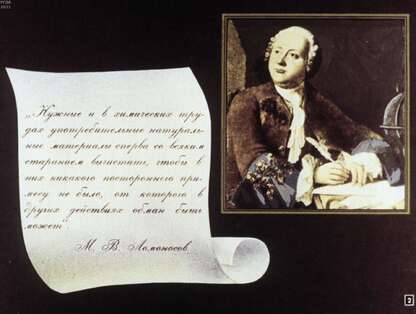 „Нужные и в химических тру-
дах употребительные натураль-
ные материалы сперва со всяким
старанием вычистить, чтобы в
них никакого постороннего при-
месу не было, от которого в
других действиях обман быть
может"
М. В. Ломоносов
2